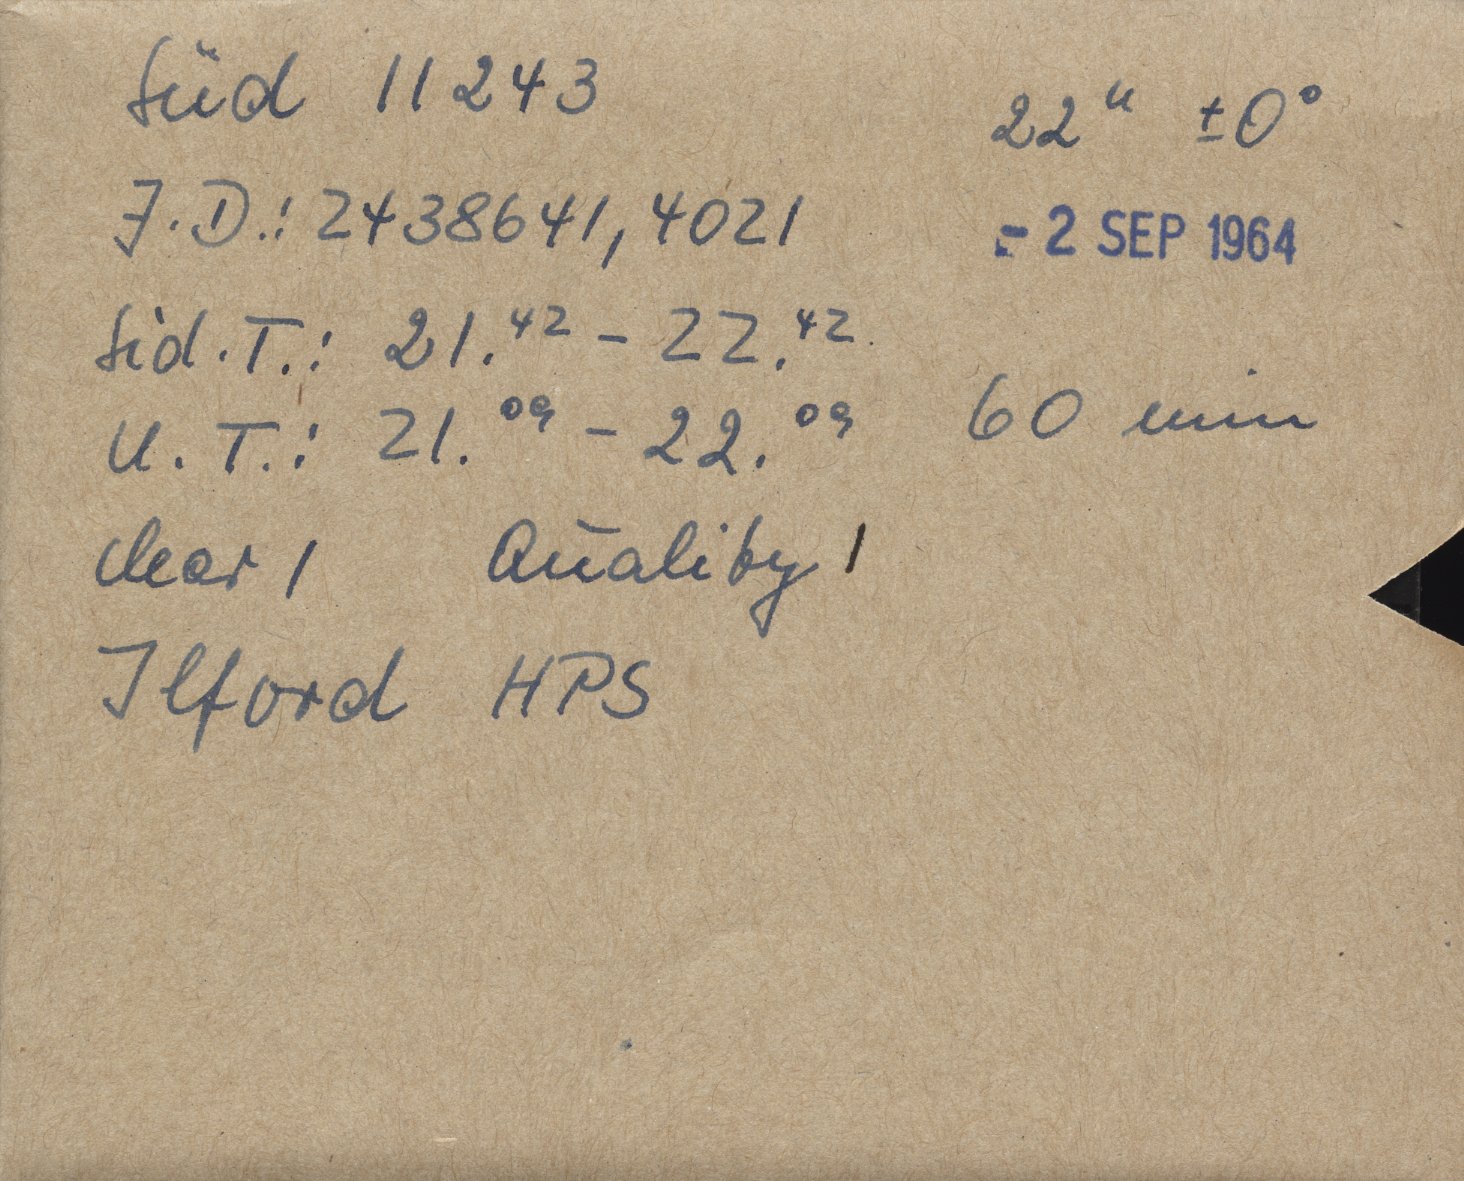 Süd 11243
22ᵘ ±0°
J.D.: 2438641,4021
- 2 SEP 1964
Sid.T.: 21.⁴² - 22.⁴²
U.T.: 21.⁰⁹ - 22.⁰⁹ 60 min
clear 1 Quality 1
Ilford HPS